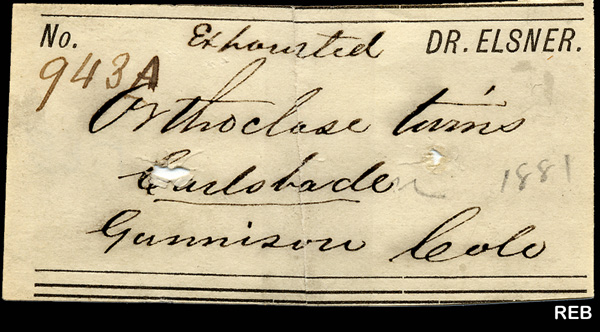 No. Exhausted DR. ELSNER.
943A
Orthoclase twins
Carlsbade 1881
Gunnison Colo
REB